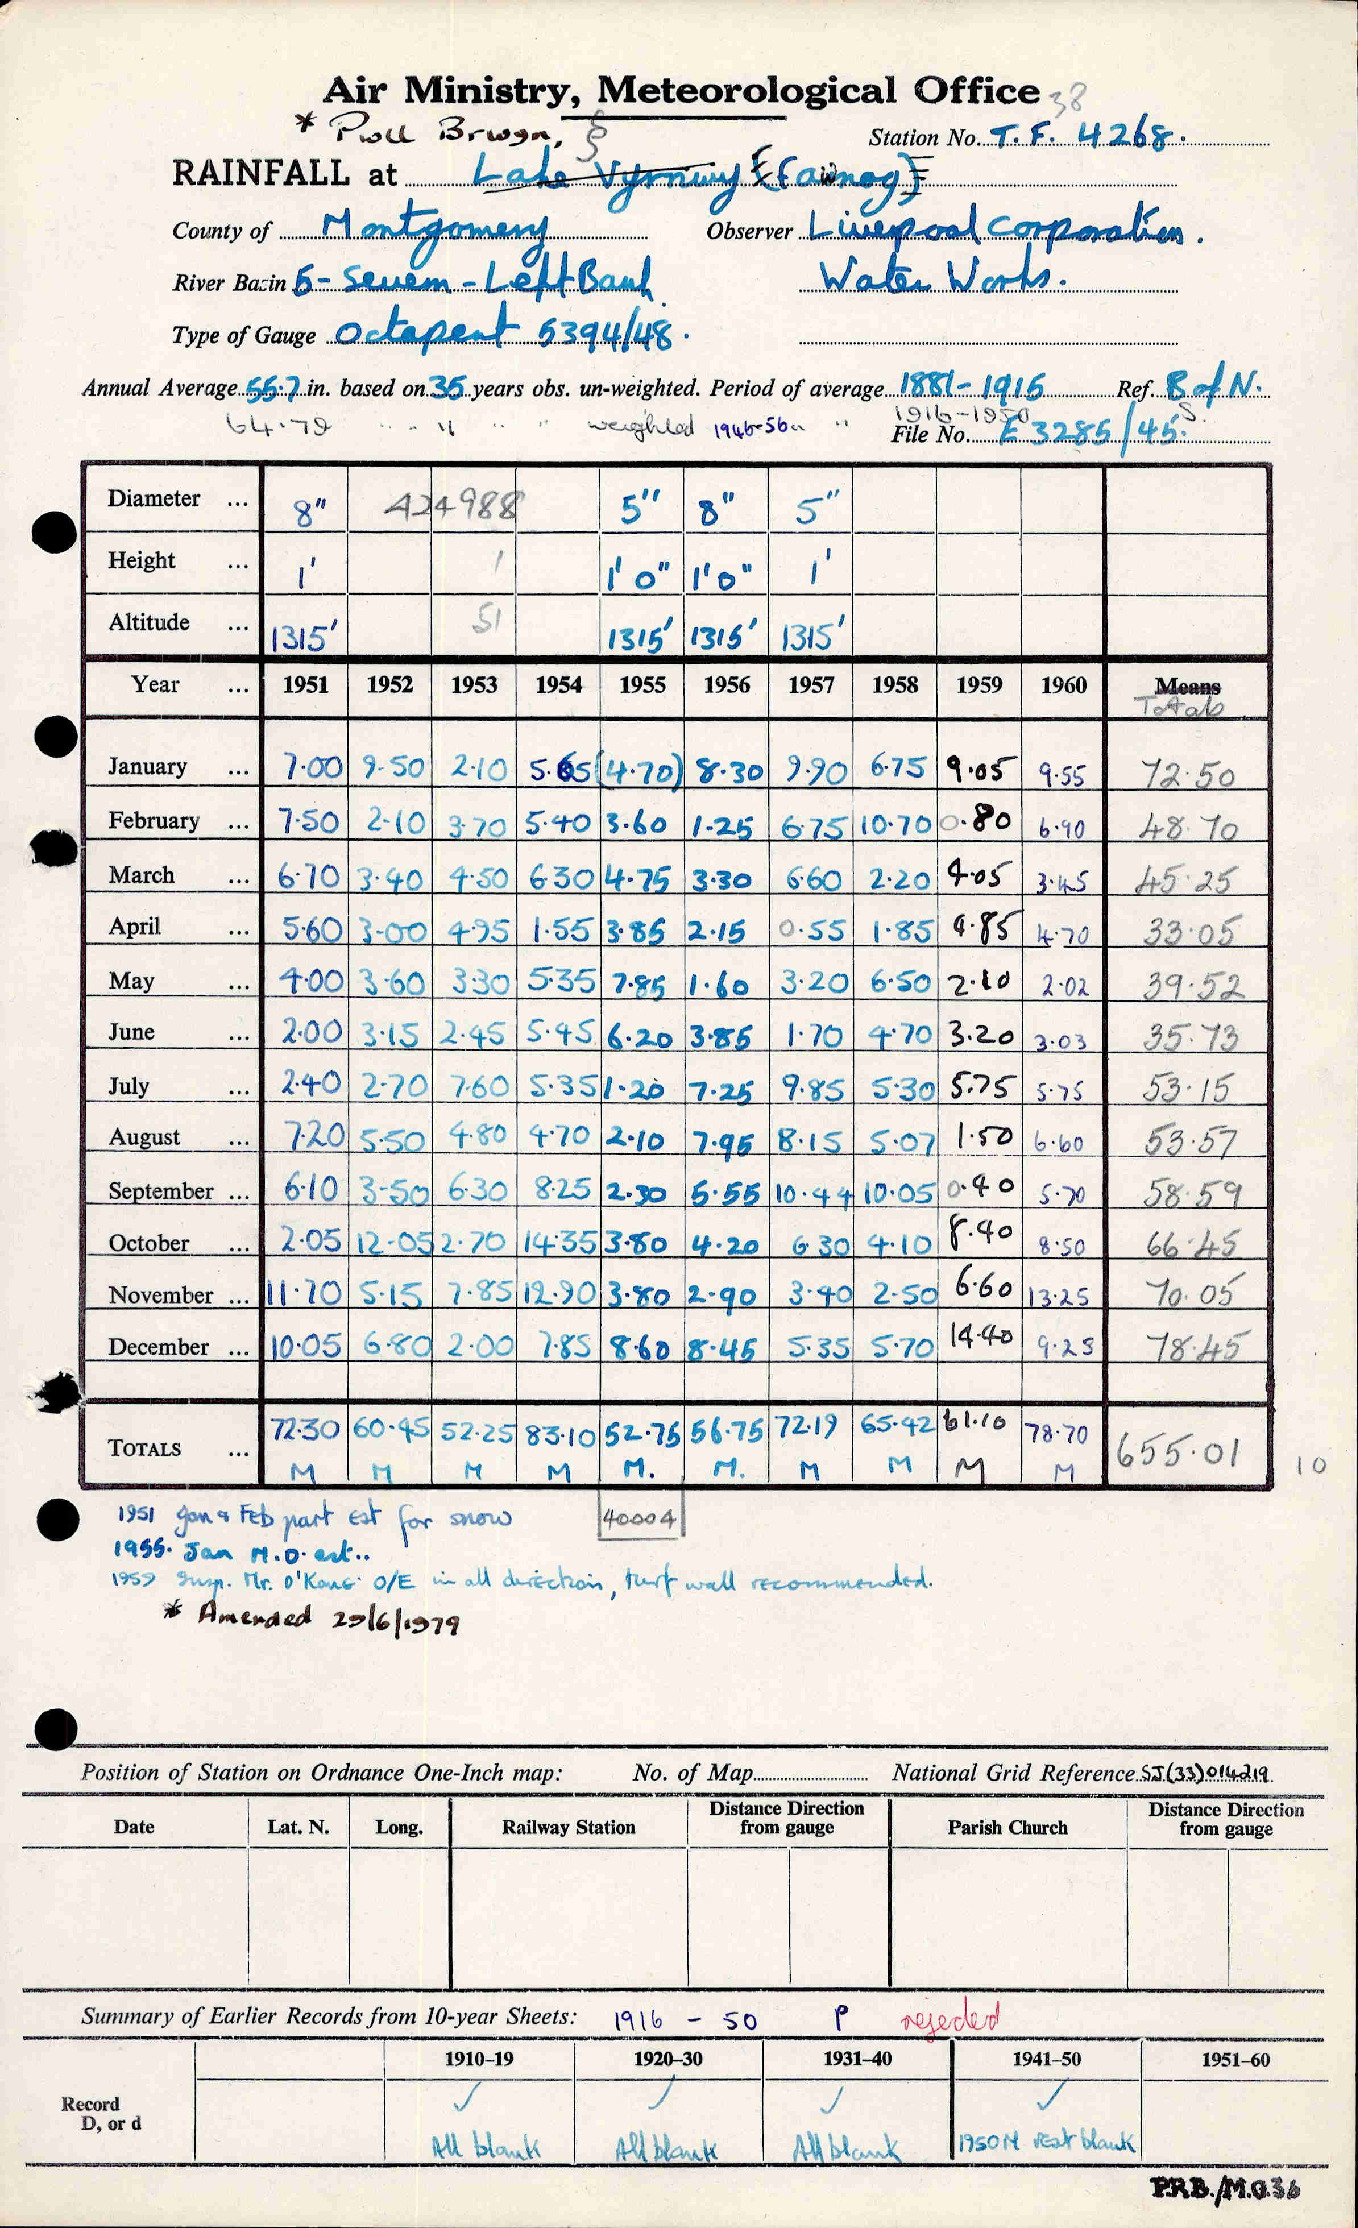 Air Ministry, Meteorological Office 38
* Pwll Brwyn,
Station No. T.F. 4268.
RAINFALL at Lake Vyrnwy (Eawnog)
County of Montgomery Observer Liverpool Corporation.
River Basin 5 - Severn - Left Bank Water Works.
Type of Gauge Octapent 5394/48.
Annual Average 55.7 in. based on 35 years obs. un-weighted. Period of average 1881-1915 Ref. B of N.
64.79 " " " " " weighted 1946-56 " " 1916-1950
File No. E 3285/45.
Diameter ... 8" 424988 5" 8" 5"
Height ... 1' 1 1'0" 1'0" 1'
Altitude ... 1315' 51 1315' 1315' 1315'
Year ... 1951 1952 1953 1954 1955 1956 1957 1958 1959 1960 Means
Totals
January ... 7.00 9.50 2.10 5.65 (4.70) 8.30 9.90 6.75 9.05 9.55 72.50
February ... 7.50 2.10 3.70 5.40 3.60 1.25 6.75 10.70 0.80 6.90 48.70
March ... 6.70 3.40 4.50 6.30 4.75 3.30 6.60 2.20 4.05 3.45 45.25
April ... 5.60 3.00 4.95 1.55 3.85 2.15 0.55 1.85 4.85 4.70 33.05
May ... 4.00 3.60 3.30 5.35 7.85 1.60 3.20 6.50 2.10 2.02 39.52
June ... 2.00 3.15 2.45 5.45 6.20 3.85 1.70 4.70 3.20 3.03 35.73
July ... 2.40 2.70 7.60 5.35 1.20 7.25 9.85 5.30 5.75 5.75 53.15
August ... 7.20 5.50 4.80 4.70 2.10 7.95 8.15 5.07 1.50 6.60 53.57
September ... 6.10 3.50 6.30 8.25 2.30 5.55 10.44 10.05 0.40 5.70 58.59
October ... 2.05 12.05 2.70 14.35 3.80 4.20 6.30 4.10 8.40 8.50 66.45
November ... 11.70 5.15 7.85 12.90 3.80 2.90 3.40 2.50 6.60 13.25 70.05
December ... 10.05 6.80 2.00 7.85 8.60 8.45 5.35 5.70 14.40 9.25 78.45
TOTALS ... 72.30 60.45 52.25 83.10 52.75 56.75 72.19 65.42 61.10 78.70 655.01 10
M M M M M. M. M M M M
1951 Jan & Feb part est for snow 40004
1955. Jan M.O. est..
1959 Insp. Mr. O'Kane O/E in all direction, turf wall recommended.
* Amended 29/6/1979
Position of Station on Ordnance One-Inch map: No. of Map National Grid Reference SJ(33)014219
Date Lat. N. Long. Railway Station Distance Direction from gauge Parish Church Distance Direction from gauge
Summary of Earlier Records from 10-year Sheets: 1916 - 50 P rejected
1910–19 1920–30 1931–40 1941–50 1951–60
Record D, or d ✓ ✓ ✓ ✓
All blank All blank All blank 1950 M rest blank
P.R.B./M.O.36